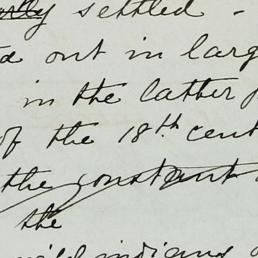 settled -
out in larg
in the latter
of the 18th cent
the constant
the
wild indians